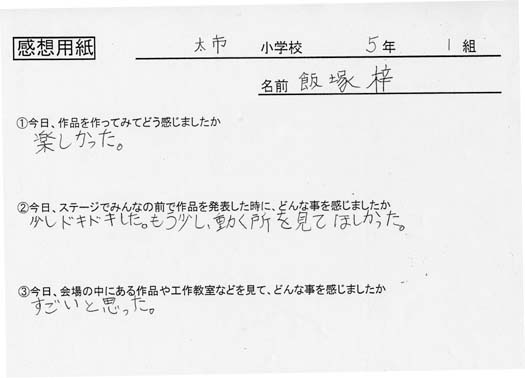 感想用紙 太市 小学校 5年 1組
名前 飯塚 梓
①今日、作品を作ってみてどう感じましたか
楽しかった。
②今日、ステージでみんなの前で作品を発表した時に、どんな事を感じましたか
少しドキドキした。もう少し、動く所を見てほしかった。
③今日、会場の中にある作品や工作教室などを見て、どんな事を感じましたか
すごいと思った。